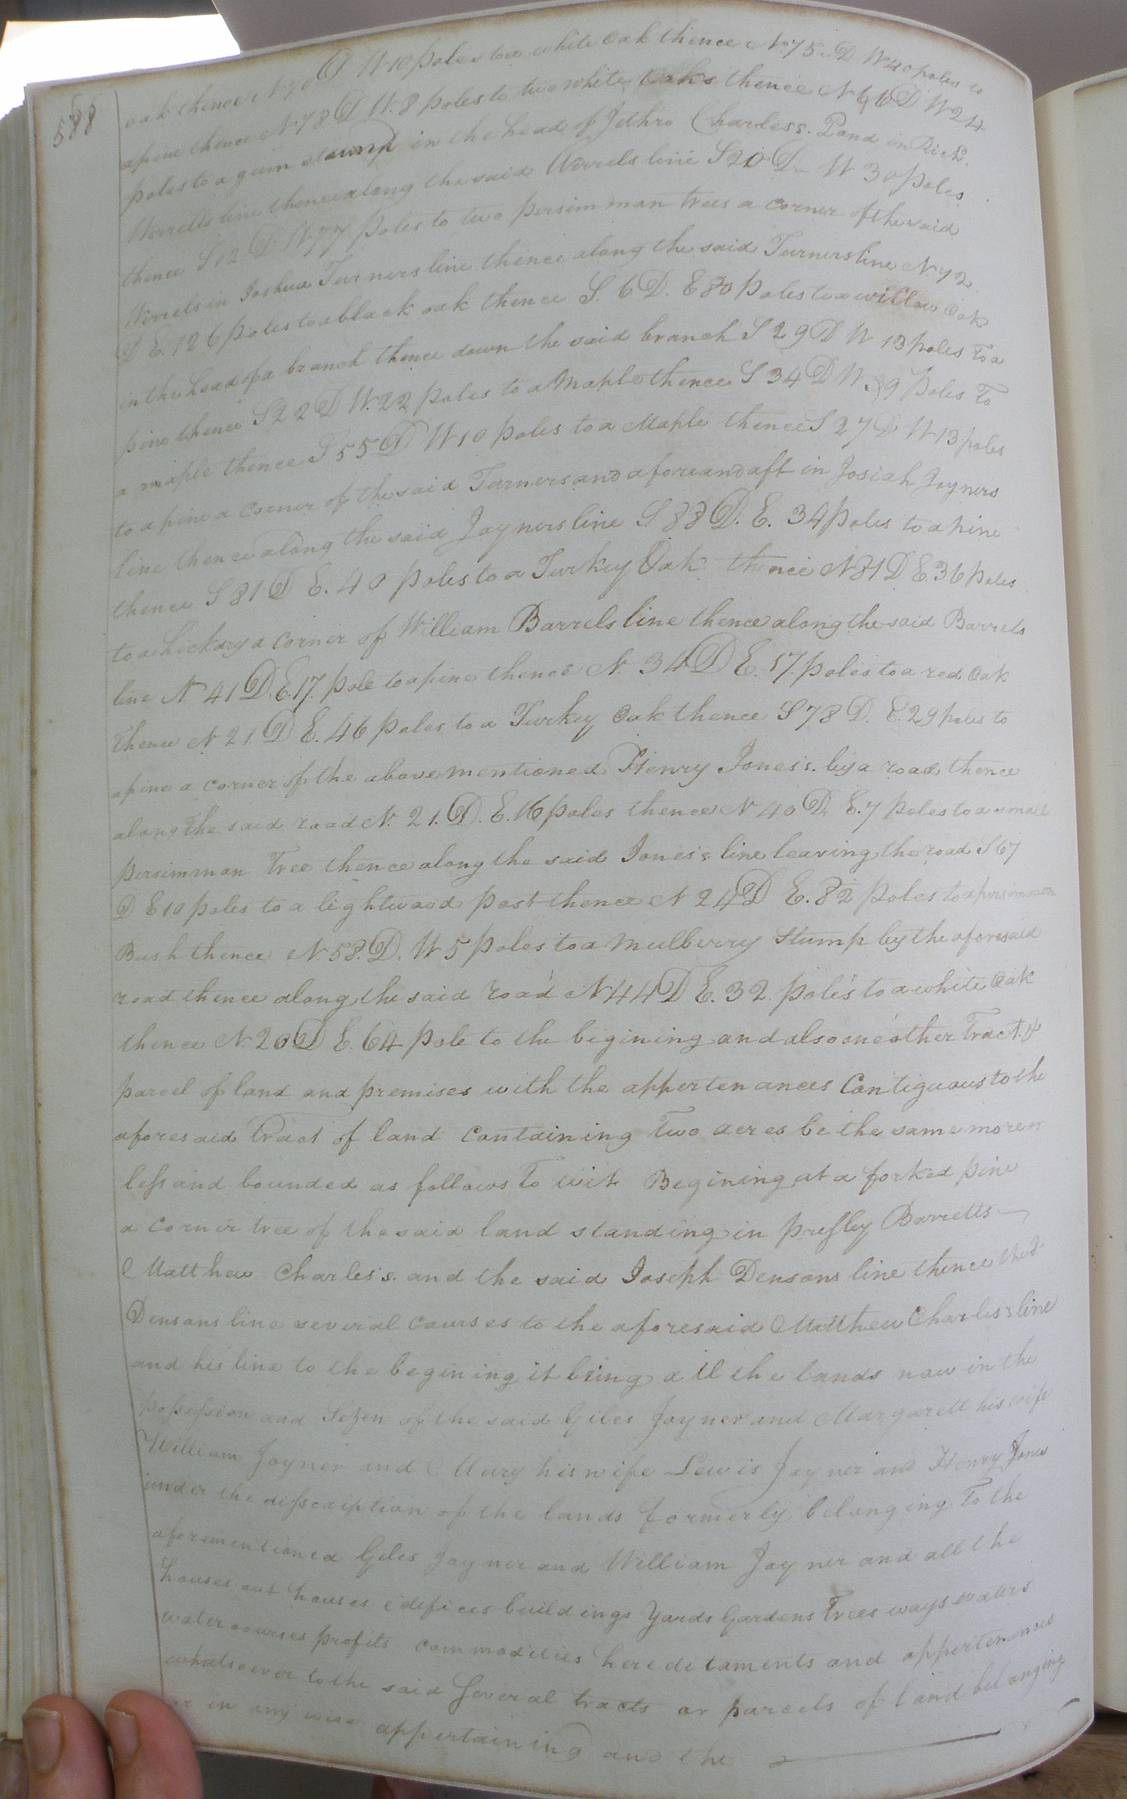 588
oak thence N 70 D W 10 poles to a white oak thence N 75 D W 40 poles to
a pine thence N 78 D W. 8 poles to two white oaks thence N 66 D W 24
poles to a gum stump in the head of Jethro Charless. Pond in Rich.
Worrells line thence along the said Worrels line S 20 D. W 30 poles
thence S 02 D W 77 poles to two persimmon trees a corner of the said
Worrels in Joshua Turners line thence along the said Turners line N. 72.
D E. 126 poles to a black oak thence S. 6 D. E 80 poles to a willow oak
in the head of a branch thence down the said branch S 29 D W 13 poles to a
pine thence S 22 D W. 22 poles to a Maple thence S 34 D W. 39 poles to
a maple thence S 55 D W 10 poles to a Maple thence S 27 D W 13 poles
to a pine a corner of the said Turners and a fore and aft in Josiah Joyners
line thence along the said Joyners line S 88 D. E. 34 poles to a pine
thence S 81 D E. 40 poles to a Turkey Oak thence N 81 D E. 36 poles
to a hickory a corner of William Barrels line thence along the said Barrels
line N 41 D. E. 17. pole to a pine thence N. 34 D E. 57. poles to a red oak
thence N 21. D E. 46 poles to a Turkey oak thence S 78 D. E. 29 poles to
a pine a corner of the above mentioned Henry Jones's. by a road, thence
along the said road N. 21. D. E. 16 poles thence N 40 D. E. 7 poles to a small
persimmon tree thence along the said Jones's line leaving the road S 67
D E 10 poles to a lightwood post thence N 24 D E. 82 poles to a persimmon
Bush thence N 58. D. W 5 poles to a mulberry Stump by the aforesaid
road thence along the said road N 44 D E. 32 poles to a white oak
thence N 20 D E. 64 pole to the begining and also one other Tract. &
parcel of land and premises with the appertenances Contiguous to the
aforesaid Tract of land Containing Two acres be the same more or
less and bounded as follows To wit Begining at a forked pine
a corner tree of the said land standing in Presley Barretts
Matthew Charles's. and the said Joseph Densons line thence the sd
Densons line several courses to the aforesaid Matthew Charles's line
and his line to the begining it being all the lands now in the
possession and Sezen of the said Giles Joyner and Margarett his wife
William Joyner and Mary his wife Lewis Joyner and Henry Jones
under the disscription of the lands formerly belonging To the
aforementioned Giles Joyner and William Joyner and all the
houses out houses edifices buildings Yards Gardens Trees ways waters
watercourses profits commodities hereditaments and appertenances
whatsoever to the said Several tracts or parcels of land belonging
or in any wise appertaining and the